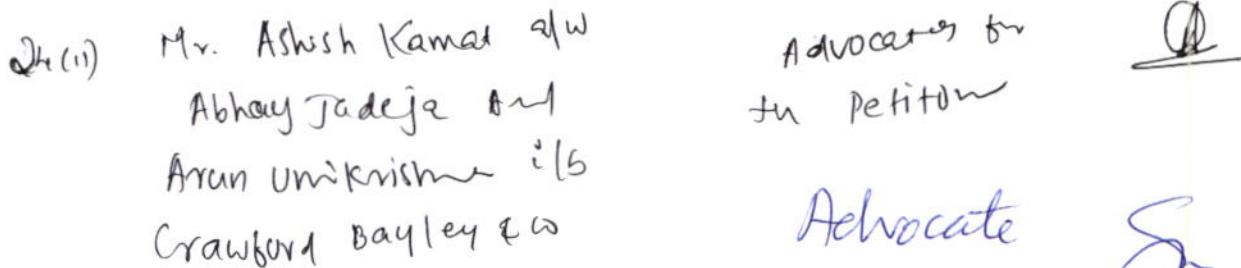 24(11) Mr. Ashish Kamat a/w
Abhay Jadeja And
Arun Unikrishna i/b
Crawford Bayley & Co
Advocates for
the Petition
Advocate